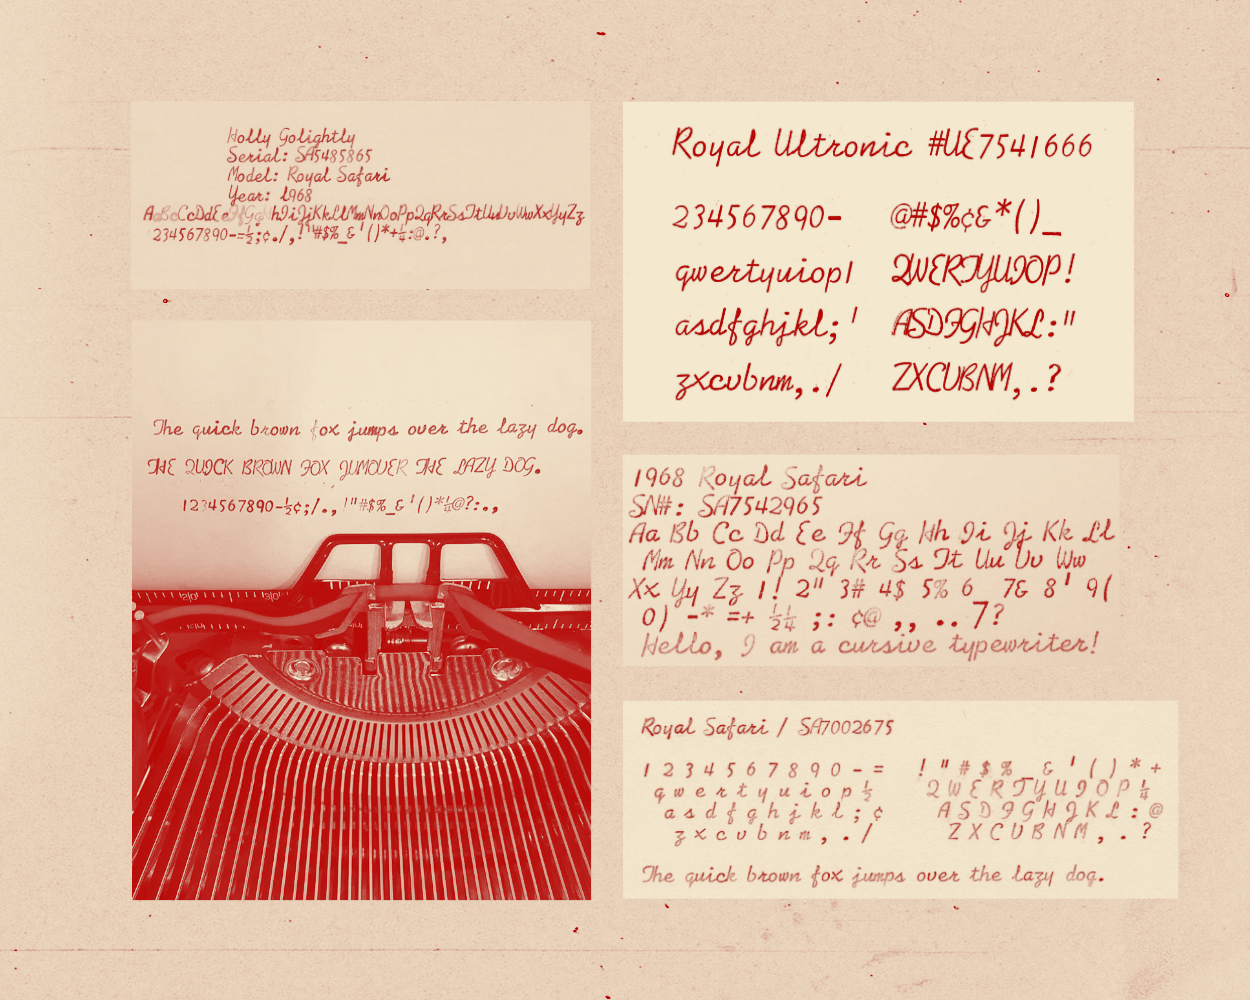 Holly Golightly
Serial: SA5485865
Model: Royal Safari
Year: 1968
AaBbCcDdEeFfGgHhIiJjKkLlMmNnOoPp2qRrSsTtUuVvWwXxYyZz
234567890-=½;¢./,!"#$%_&'()*+¼:@.?,
The quick brown fox jumps over the lazy dog.
THE QUICK BROWN FOX JUMOVER THE LAZY DOG.
1234567890-½¢;/.,!"#$%_&'()*¼@?:.,
Royal Ultronic #UE7541666
234567890- @#$%¢&*()_
qwertyuiop1 QWERTYUIOP!
asdfghjkl;' ASDFGHJKL:"
zxcvbnm,./ ZXCVBNM,.?
1968 Royal Safari
SN#: SA7542965
Aa Bb Cc Dd Ee Ff Gg Hh Ii Jj Kk Ll
Mm Nn Oo Pp Qq Rr Ss Tt Uu Vv Ww
Xx Yy Zz 1! 2" 3# 4$ 5% 6_ 7& 8' 9(
0) -* =+ ½¼ ;: ¢@ ,, .. 7?
Hello, I am a cursive typewriter!
Royal Safari / SA7002675
1 2 3 4 5 6 7 8 9 0 - = ! " # $ % _ & ' ( ) * +
q w e r t y u i o p ½ Q W E R T Y U I O P ¼
a s d f g h j k l ; ¢ A S D F G H J K L : @
z x c v b n m , . / Z X C V B N M , . ?
The quick brown fox jumps over the lazy dog.